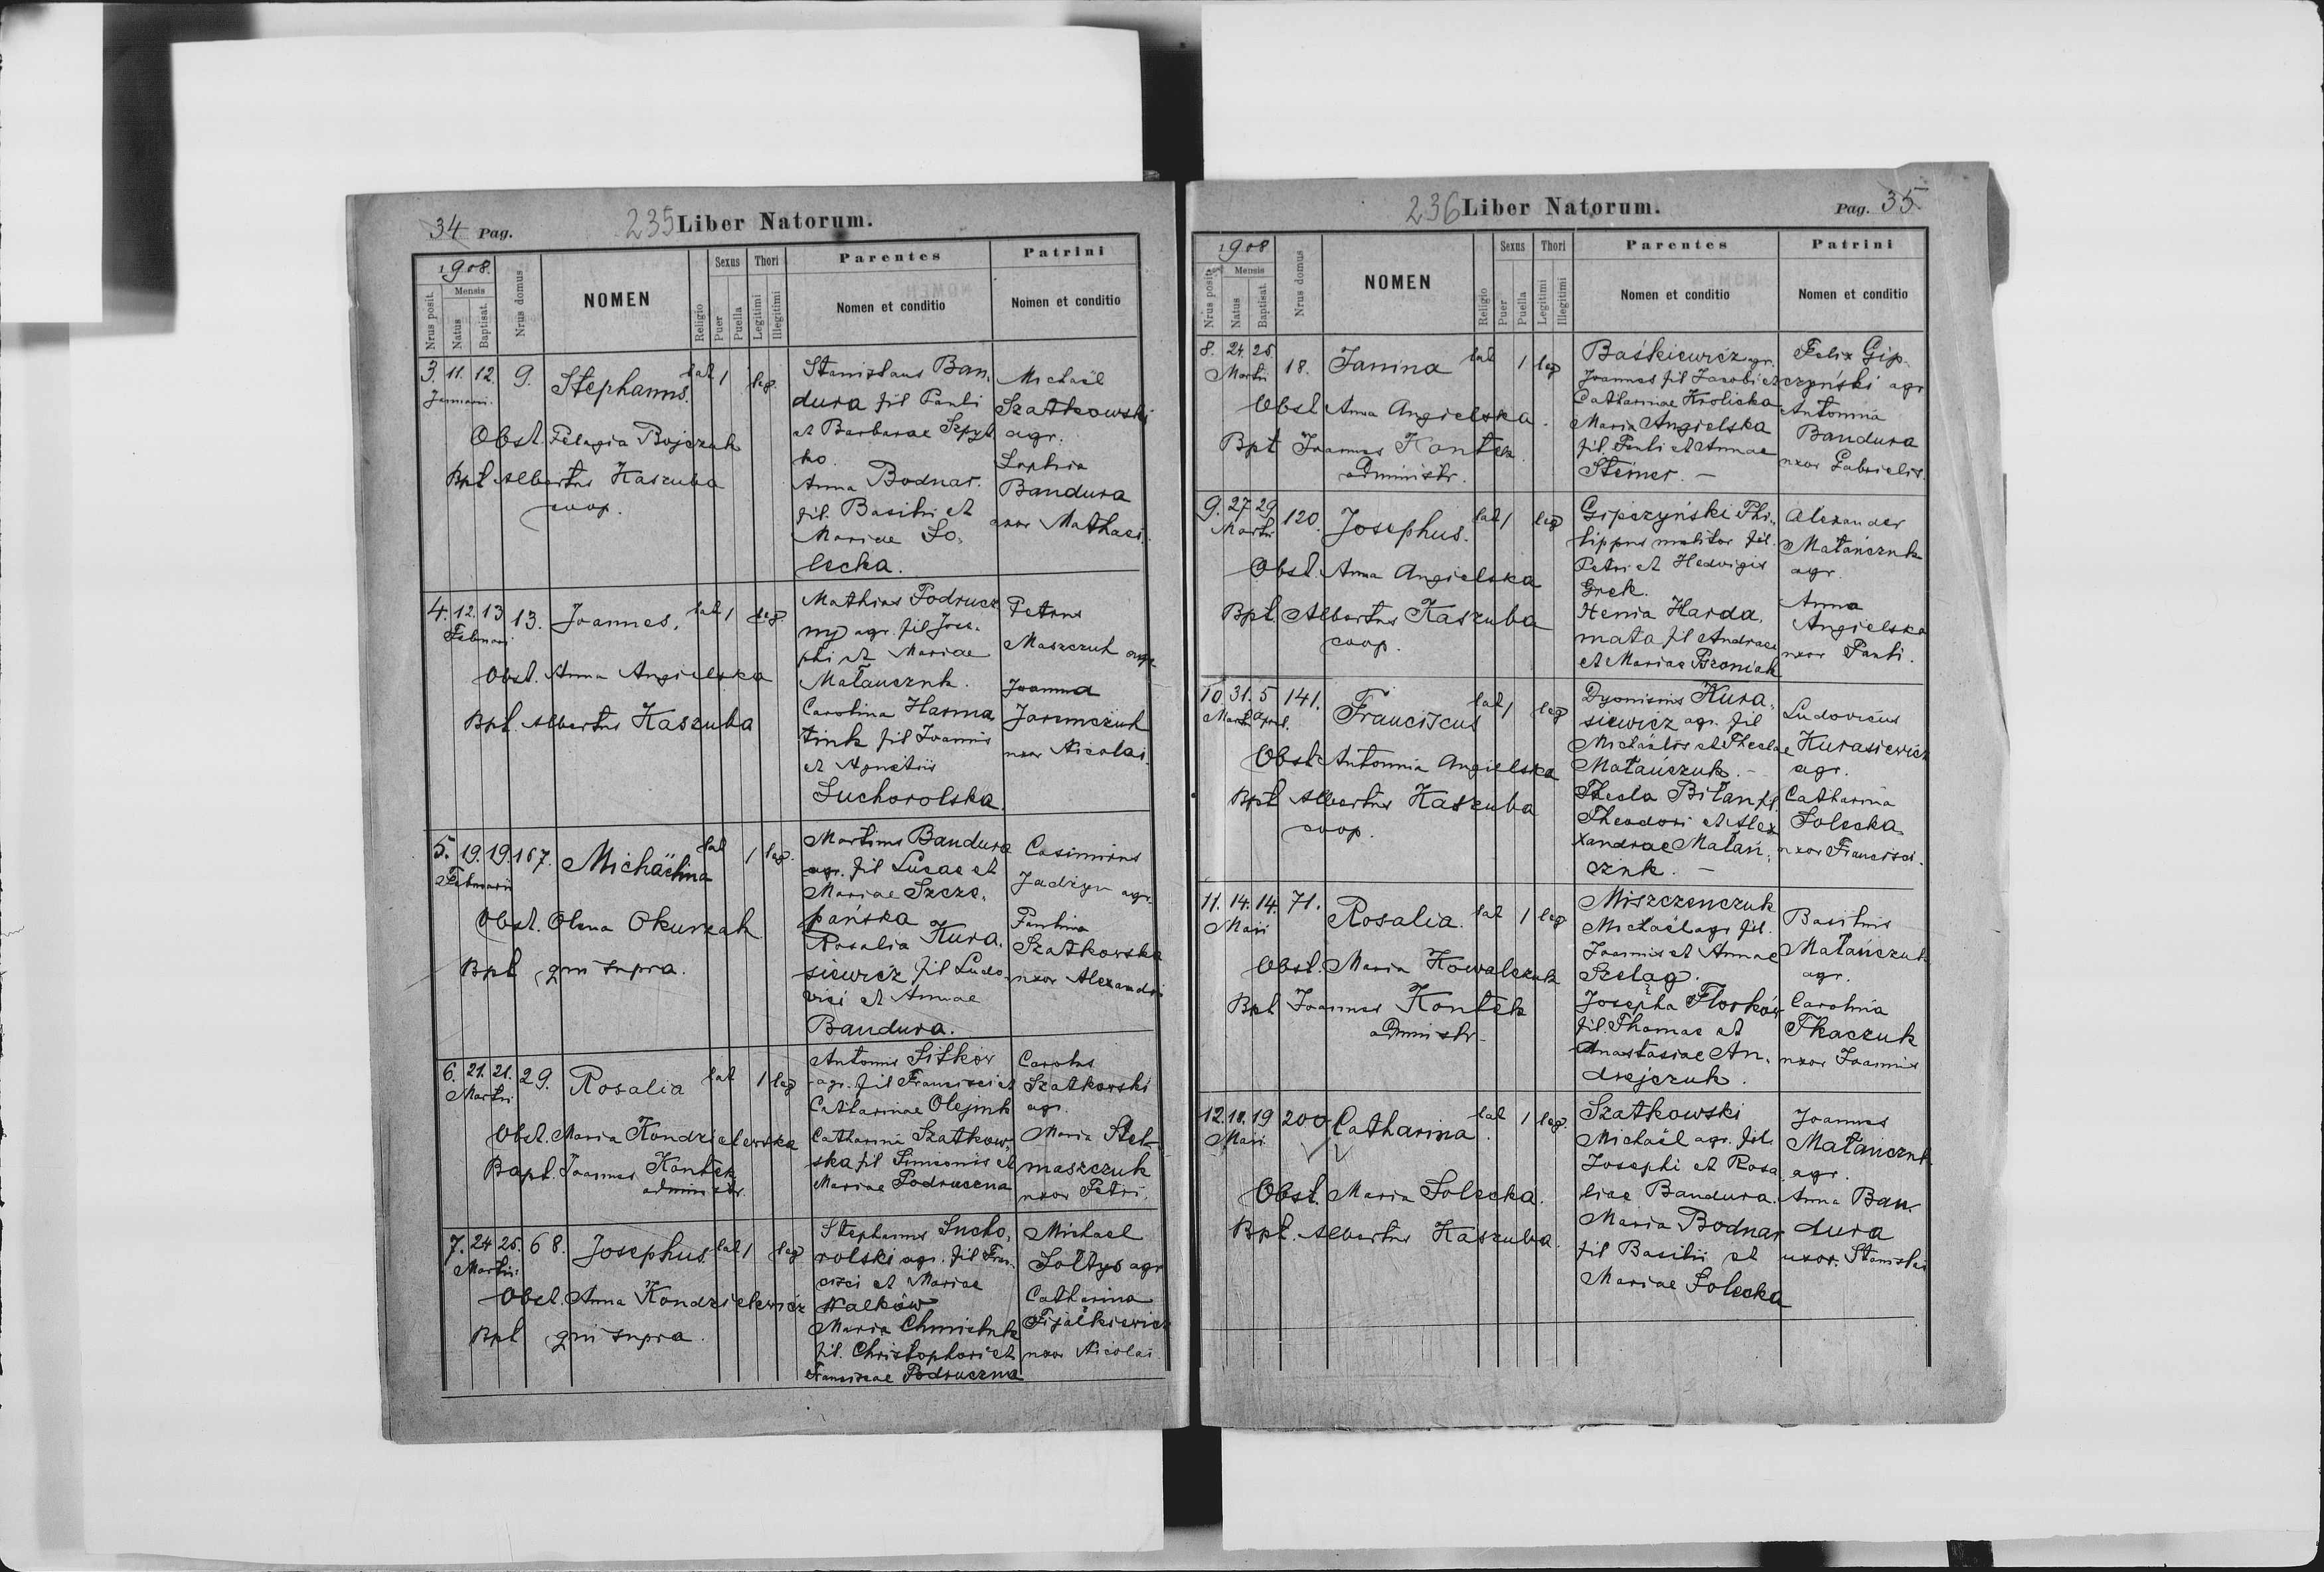 34 Pag.
235 Liber Natorum.
1908.
Nrus posit.
Mensis
Natus
Baptisat.
Nrus domus
NOMEN
Religio
Sexus
Puer
Puella
Thori
Legitimi
Illegitimi
Parentes
Nomen et conditio
Patrini
Nomen et conditio
3. 11. 12. 9. Stephanus. lat 1 leg.
Januari.
Obst. Pelagia Bojczuk
Bpt Albertus Kaszuba
coop.
Stanislaus Ban-
dura fil Pauli
et Barbarae Szpyt
ko.
Anna Bodnar.
fil. Basilii et
Mariae So-
lecka.
Michaël
Szatkowski
agr.
Sophia
Bandura
uxor Mathaei.
4. 12. 13 13. Joannes. lat 1 leg.
Februari
Obst. Anna Angielska
Bpt. Albertus Kaszuba
Mathias Podrucz
ny agr. fil Jose-
phi et Mariae
Matauczuk.
Carolina Harma
tiuk fil Joannis
et Agnetis
Suchorolska.
Petrus
Maszczuk agr
Joanna
Jaremczuk
uxor Nicolai.
5. 19. 19. 167. Michäelina lat 1 leg.
Februarii
Obst. Olena Okurzak
Bpt qui supra.
Martinus Bandura
agr. fil Lucae et
Mariae Szcze-
pańska
Rosalia Kura-
siewicz fil Ludo-
vici et Annae
Bandura.
Casimirus
agr.
Paulina
Szatkowska
uxor Alexandri
6. 21. 21. 29. Rosalia lat 1 leg
Martii
Obst. Maria Kondzielewska
Bapt. Joannes Kontek
administr.
Antonius Sitkow
agr. fil Francisci et
Catharinae Olejnik
Catharina Szatkow-
ska fil Simeonis et
Mariae Podruczna
Carolus
Szatkowski
agr.
Maria Stel-
maszczuk
uxor Petri.
7. 24 25. 68. Josephus. lat 1 leg
Martii
Obst. Anna Kondzielewicz
Bpt qui supra.
Stephanus Sucho-
rolski agr. fil Fran-
cisci et Mariae
Walków
Maria Chmieluk
fil. Christophori et
Franciscae Podruczna
Michael
Sołtys agr
Catharina
Fijałkiewicz
uxor Nicolai.
236 Liber Natorum.
Pag. 35
1908
Nrus posit.
Mensis
Natus
Baptisat.
Nrus domus
NOMEN
Religio
Sexus
Puer
Puella
Thori
Legitimi
Illegitimi
Parentes
Nomen et conditio
Patrini
Nomen et conditio
8. 24. 25. 18. Janina lat 1 leg
Martii
Obst Anna Angielska.
Bpt Joannes Kontek.
administr.
Baśkiewicz agr.
Joannes fil Jacobi et
Catharinae Krolicka
Maria Angielska
fil. Pauli et Annae
Steiner. —
Felix Gip-
czyński agr
Antonina
Bandura
uxor Gabrielis.
9. 27 29 120. Josephus. lat 1 leg
Martii
Obst. Anna Angielska
Bpt. Albertus Kaszuba
coop.
Gipczyński Phi-
lippus molitor fil.
Petri et Hedvigis
Grek.
Xenia Harda-
mata fil Andreae
et Mariae Bzoniak
Alexander
Matańczuk
agr.
Anna
Angielska
uxor Pauli.
10. 31. 5 141. Franciscus lat 1 leg
Martii April.
Obst Antonina Angielska
Bpt Albertus Kaszuba
coop.
Dyonisius Kura-
siewicz agr. fil
Michaëlis et Theclae
Matańczuk. —
Thecla Bilan fil
Theodori et Alex
xandrae Matań-
czuk. —
Ludovicus
Kurasiewicz
agr.
Catharina
Solecka
uxor Francisci.
11. 14. 14. 71. Rosalia. lat 1 leg
Maii
Obst. Maria Kowalczuk
Bpt Joannes Kontek
administr.
Miszczenczuk
Michaël agr fil.
Joannis et Annae
Szeląg.
Josepha Florków
fil. Thomae et
Anastasiae An-
drejczuk.
Basilius
Matańczuk
agr.
Carolina
Tkaczuk
uxor Joannis
12. 18. 19 200 Catharina. lat 1 leg.
Maii
Obst. Maria Solecka.
Bpt. Albertus Kaszuba.
Szatkowski
Michaël agr. fil.
Josephi et Rosa
liae Bandura.
Maria Bodnar
fil Basilii et
Mariae Solecka
Joannes
Matańczuk
agr.
Anna Ban-
dura
uxor. Stanislai